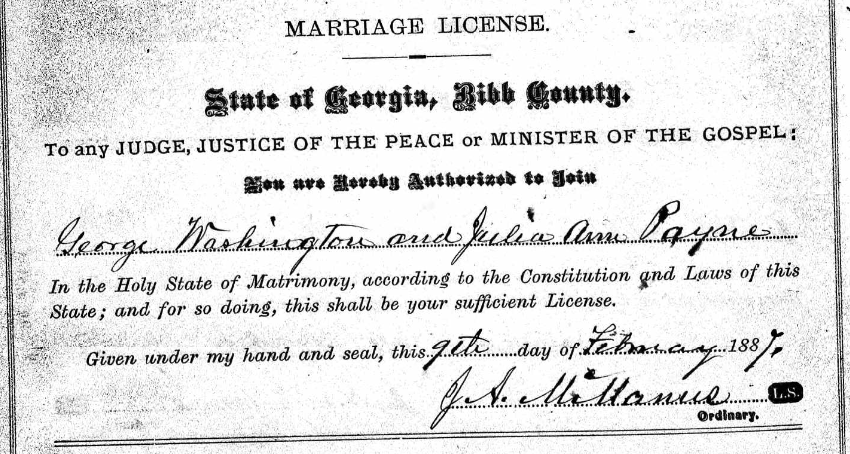 MARRIAGE LICENSE.
State of Georgia, Bibb County.
To any JUDGE, JUSTICE OF THE PEACE or MINISTER OF THE GOSPEL:
You are Hereby Authorized to Join
George Washington and Julia Ann Payne
In the Holy State of Matrimony, according to the Constitution and Laws of this
State; and for so doing, this shall be your sufficient License.
Given under my hand and seal, this 9th day of February 1887.
J. A. McManus L.S.
Ordinary.